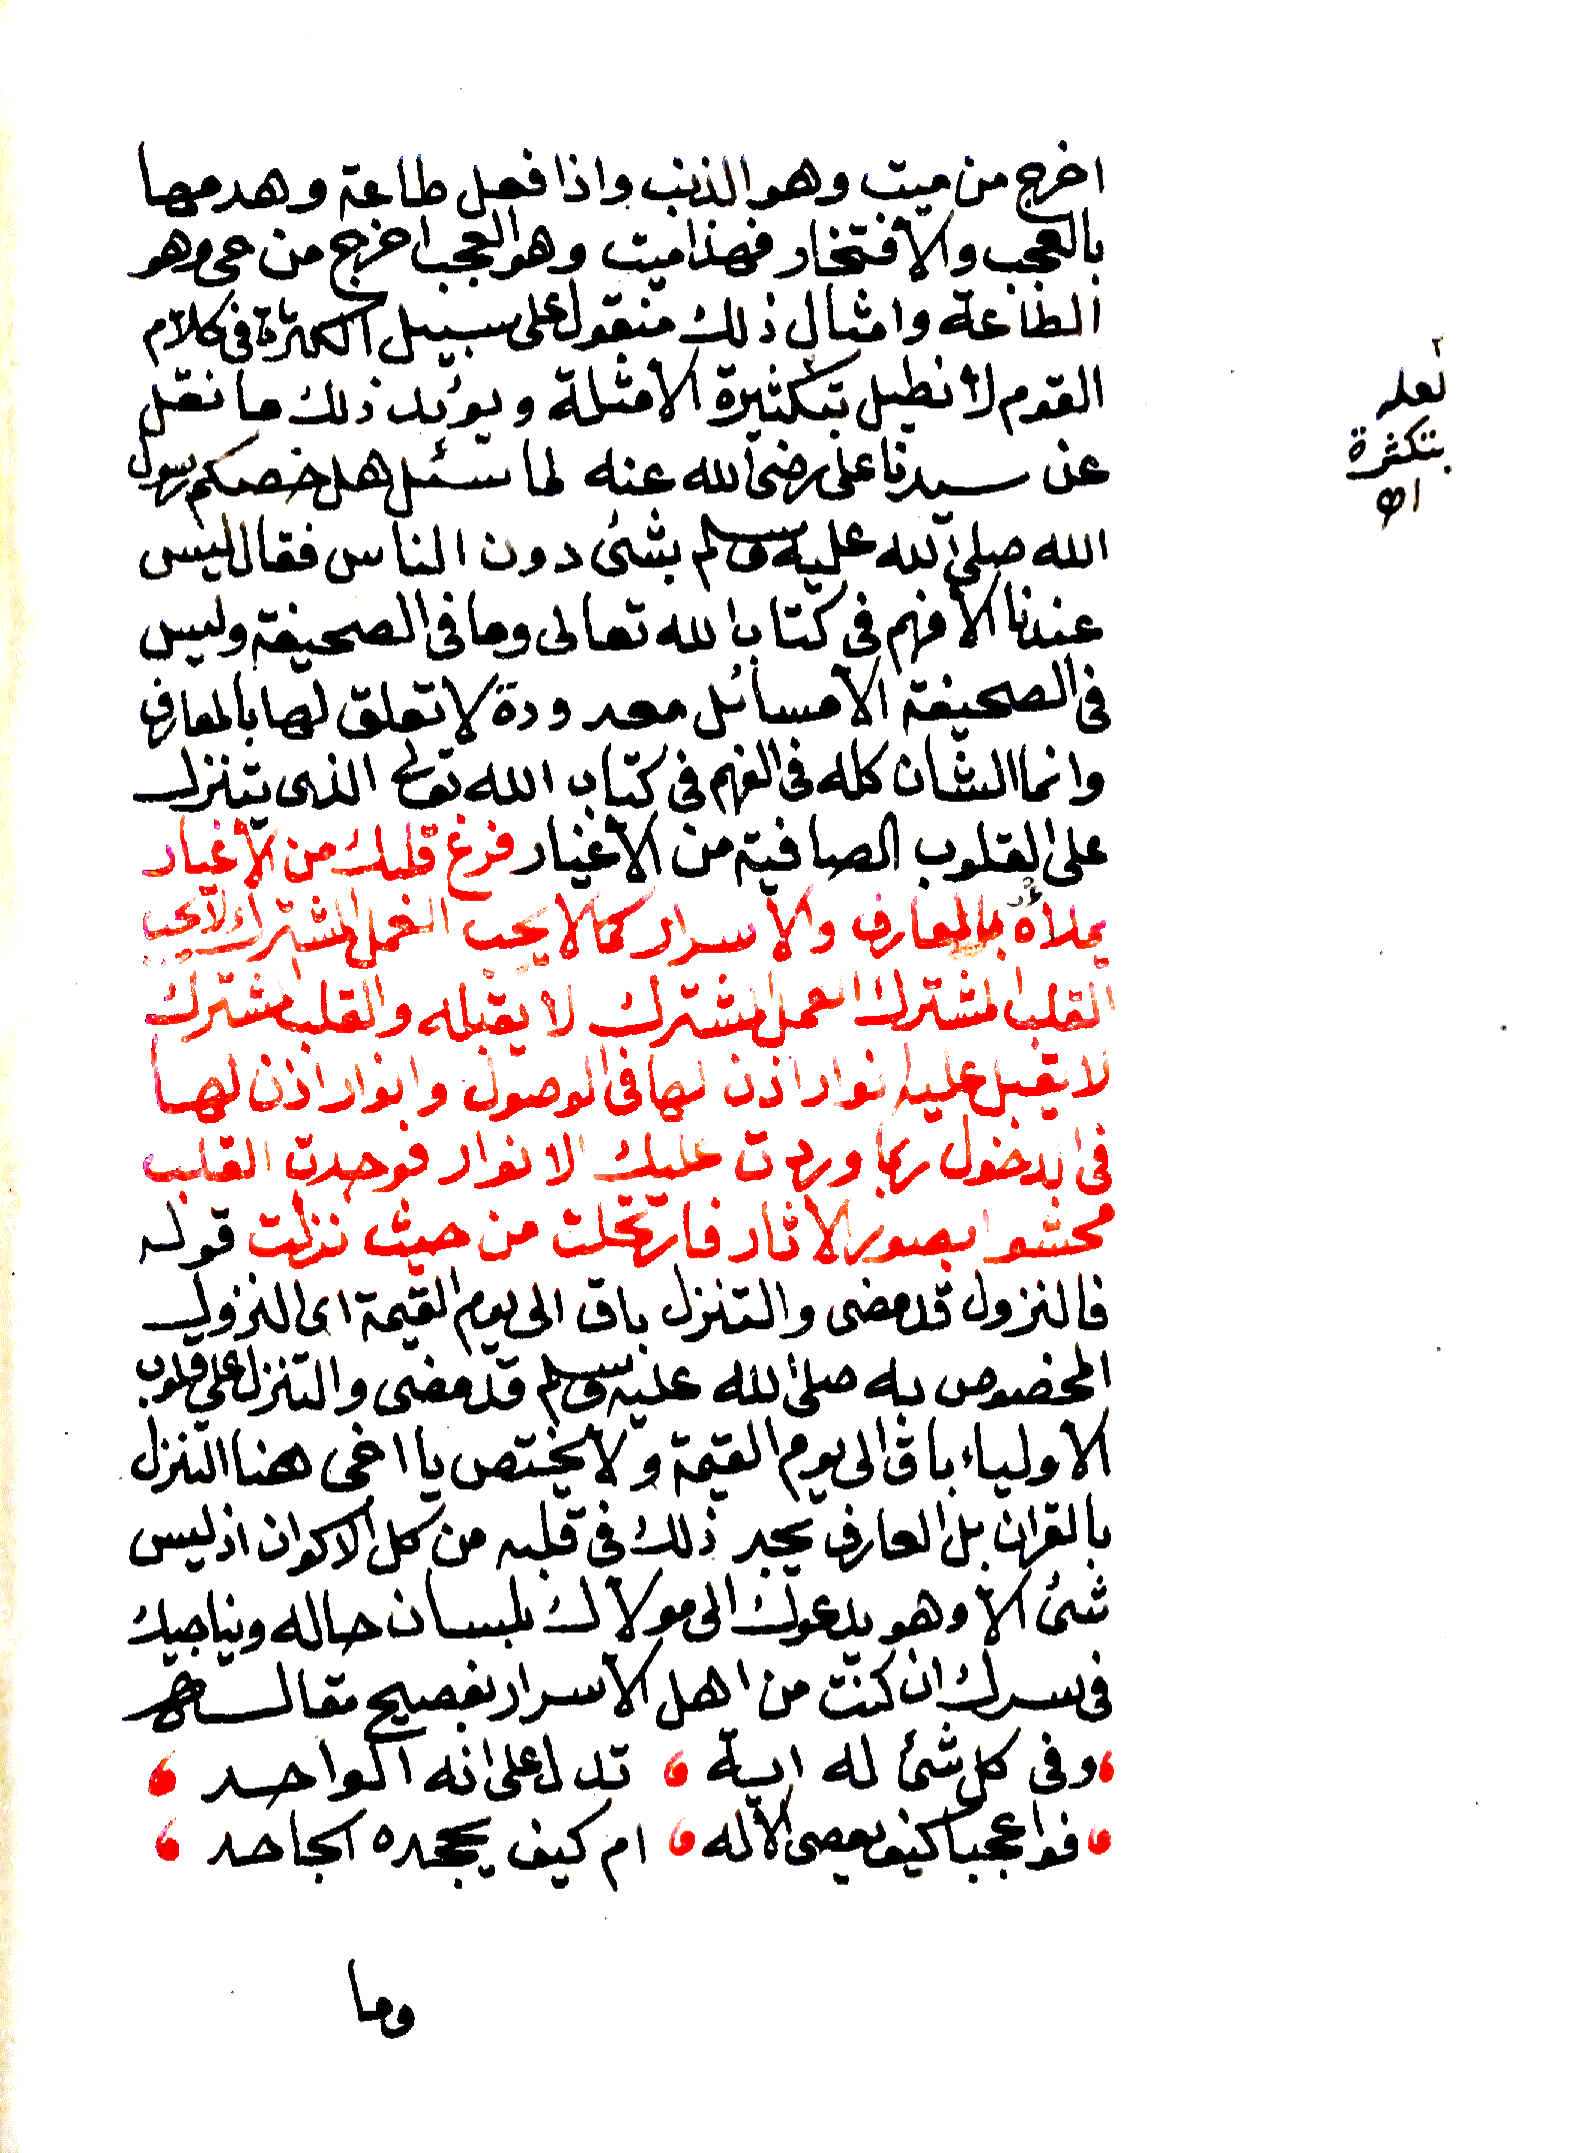 اخرج من ميت وهو الذنب واذا فعل طاعة وهدمها
بالعجب والافتخار فهذا ميت وهو العجب اخرج من حى وهو
الطاعة وامثال ذلك منقول على سبيل الكثرة فى كلام
القوم لا نطيل بتكثيرة الامثلة ويؤيد ذلك ما نقل
عن سيدنا على رضى الله عنه لما سئل هل خصكم رسول
الله صلى الله عليه وسلم بشئ دون الناس فقال ليس
عندنا الا فهم فى كتاب الله تعالى وما فى الصحيفة وليس
فى الصحيفة الا مسائل معدودة لا تعلق لها بالمعارف
وانما الشان كله فى الفهم فى كتاب الله تعالى الذى يتنزل
على القلوب الصافية من الاغيار فرغ قلبك من الاغيار
يملاه بالمعارف والاسرار كما لا يحب العمل المشترك لا يحب
القلب المشترك العمل المشترك لا يقبله والقلب المشترك
لا يقبل عليه انوار اذن لها فى الوصول وانوار اذن لها
فى الدخول ربما وردت عليك الانوار فوجدت القلب
محشوا بصور الاثار فارتحلت من حيث نزلت قوله
فالنزول قد مضى والتنزل باق الى يوم القيمة اى النزول
المخصوص به صلى الله عليه وسلم قد مضى والتنزل على قلوب
الاولياء باق الى يوم القيمة ولا يختص يا اخى هذا التنزل
بالقران بل العارف يجد ذلك فى قلبه من كل الاكوان اذ ليس
شئ الا وهو يدعوك الى مولاك بلسان حاله ويناجيك
فى سرك ان كنت من اهل الاسرار بفصيح مقاله
وفى كل شئ له اية تدل على انه الواحد
فواعجبا كيف يعصى الاله ام كيف يجحده الجاحد
وما
لعله
بتكثرة
اه